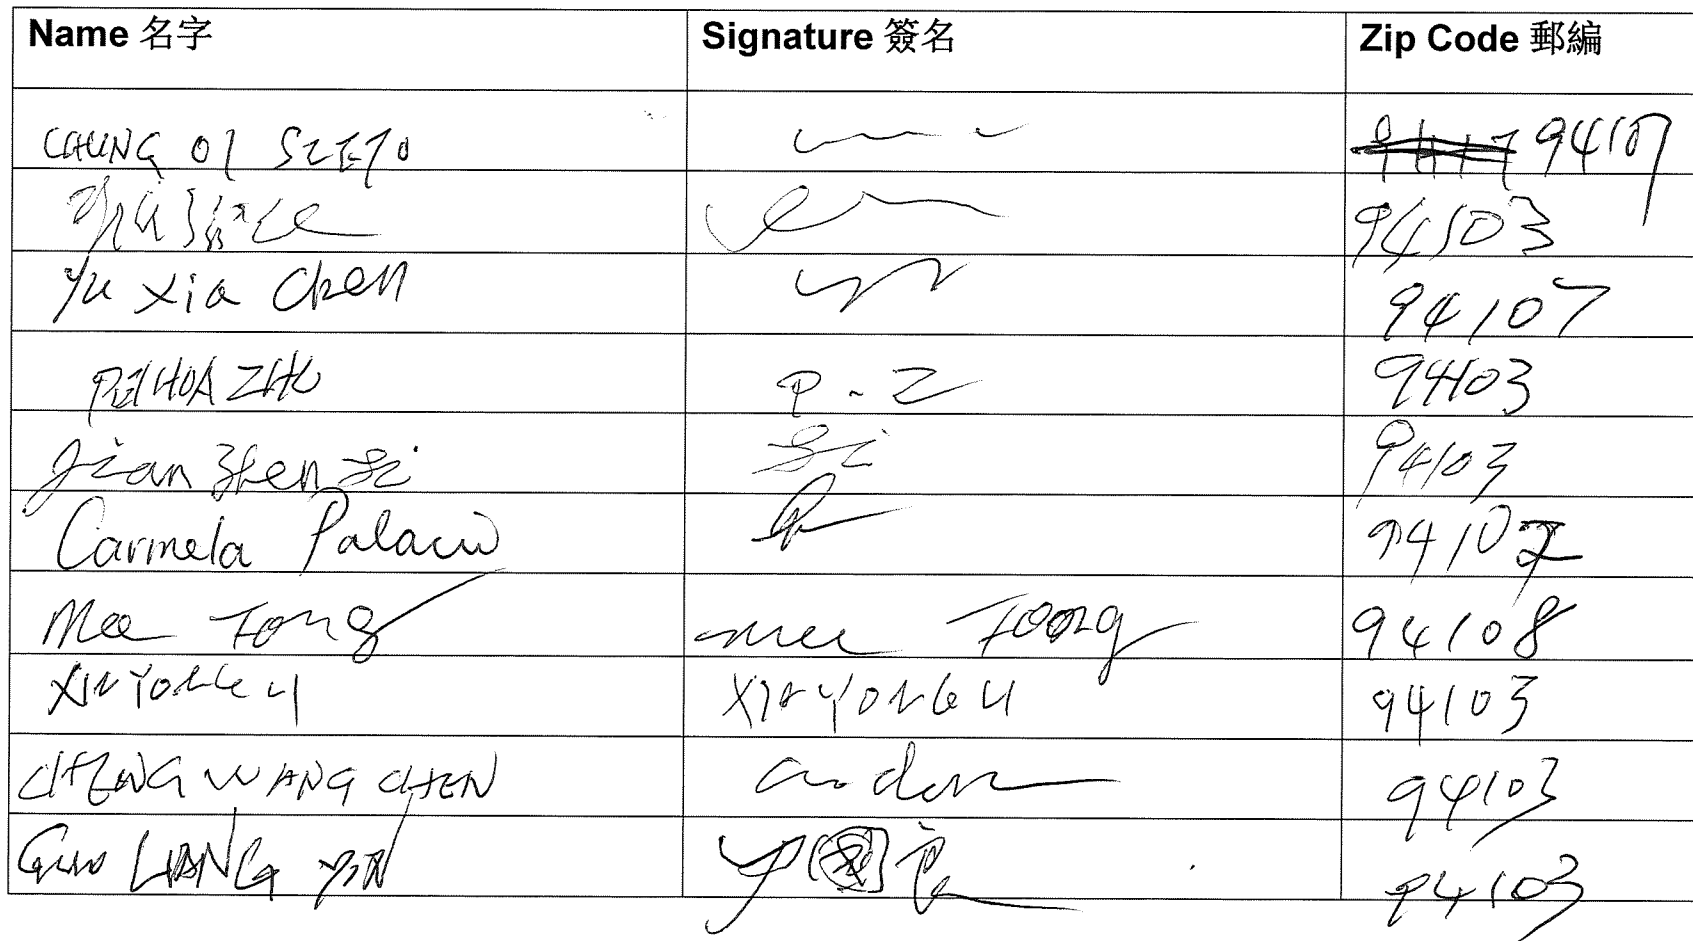 Name 名字 Signature 簽名 Zip Code 郵編
CHUNG OI SZETO 94107
94103
Yu Xia Chen 94107
PEIHUA ZHU P.Z 94103
Jian Zhen 94103
Carmela Palacio 94102
Mee Tong mee Toong 94108
XINYONG LI XINYONG LI 94103
CHENG WANG CHEN 94103
Guo LIANG YIN 尹國良 94103